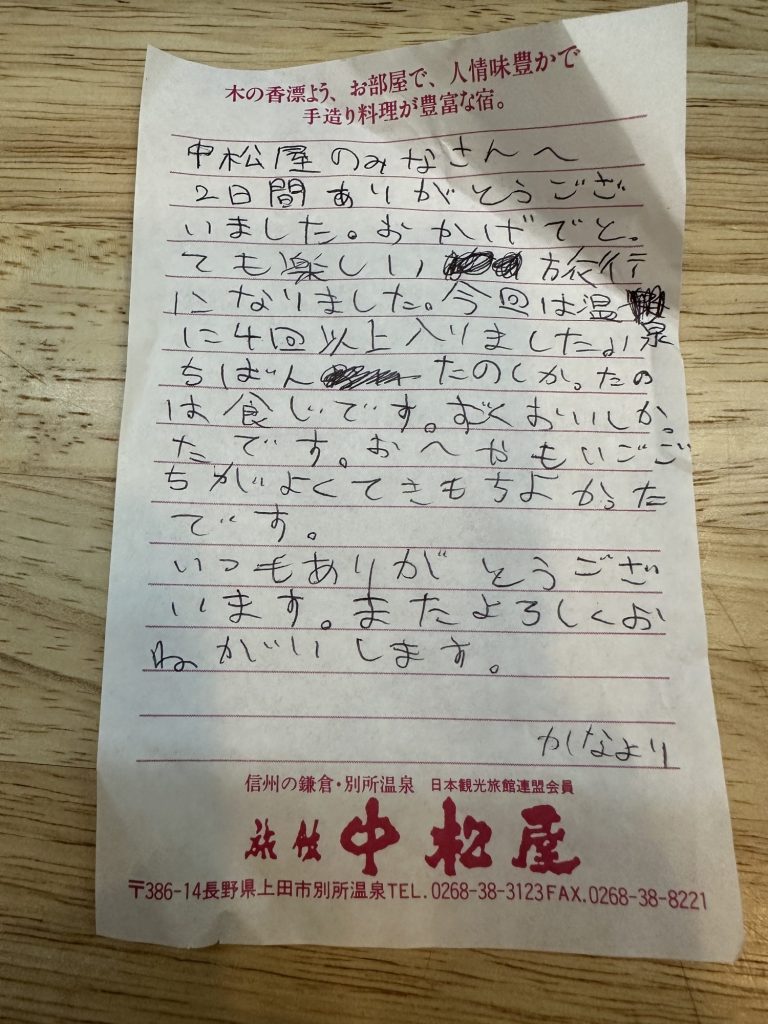 木の香漂よう、お部屋で、人情味豊かで
手造り料理が豊富な宿。
中松屋のみなさんへ
2日間ありがとうござ
いました。おかげでと
ても楽しい旅行
になりました。今回は温泉
に4回以上入りました。い
ちばんたのしかったの
は食じです。すごくおいしかっ
たです。おへやもいごご
ちがよくてきもちよかった
です。
いつもありがとうござい
います。またよろしくお
ねがいします。
かなより
信州の鎌倉・別所温泉 日本観光旅館連盟会員
旅館 中松屋
〒386-14長野県上田市別所温泉TEL.0268-38-3123FAX.0268-38-8221